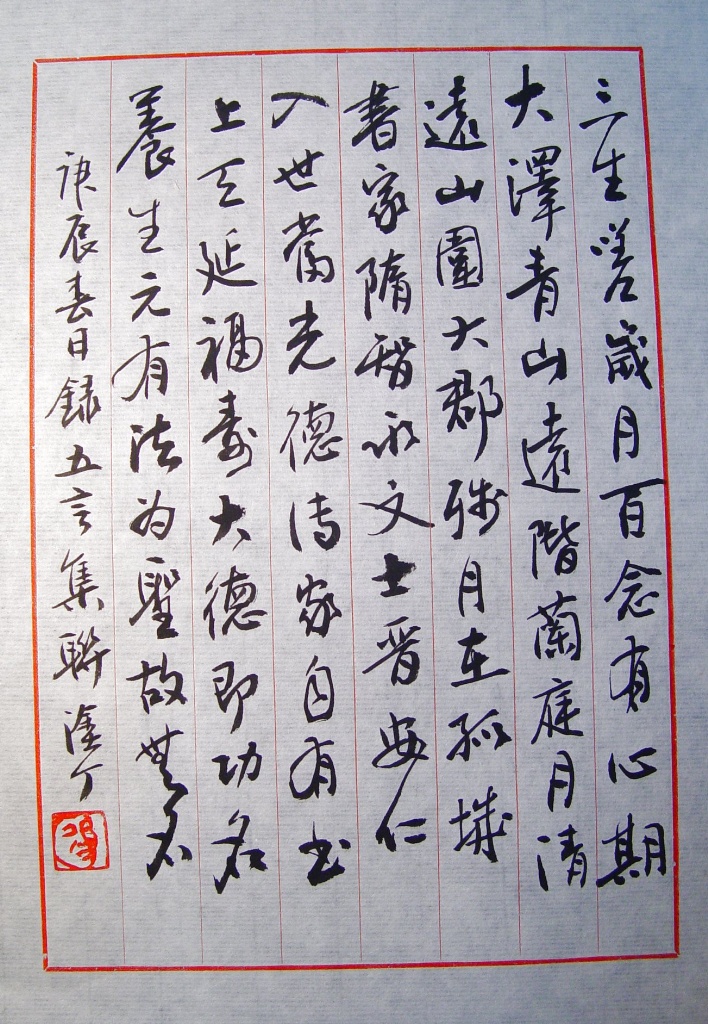 三生嗟歲月百念有心期
大澤青山遠階蘭庭月清
遠山園大郡殘月在孤城
書家隋智永文士晉安仁
入世當先德傳家自有書
上天延福壽大德即功名
養生元有法為聖故無名
庚辰春日錄五言集聯塗丁